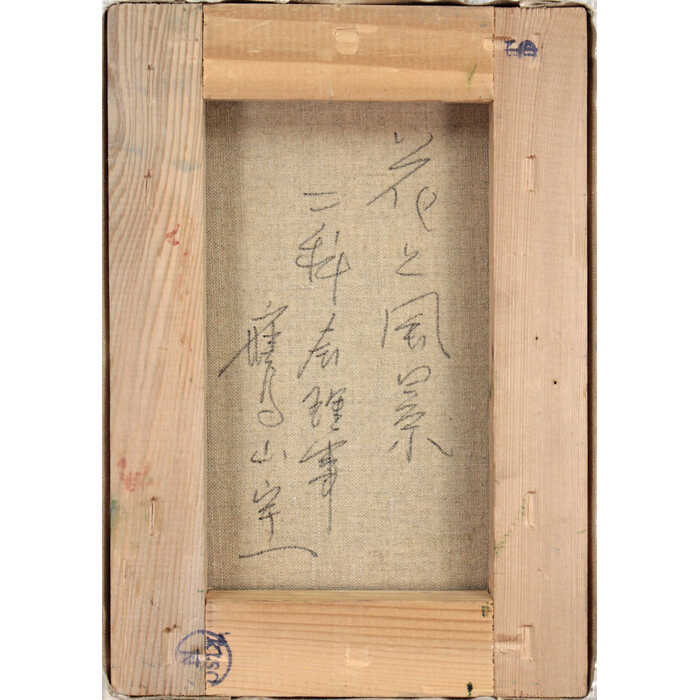 花と風景
二科会理事
鷹山宇一